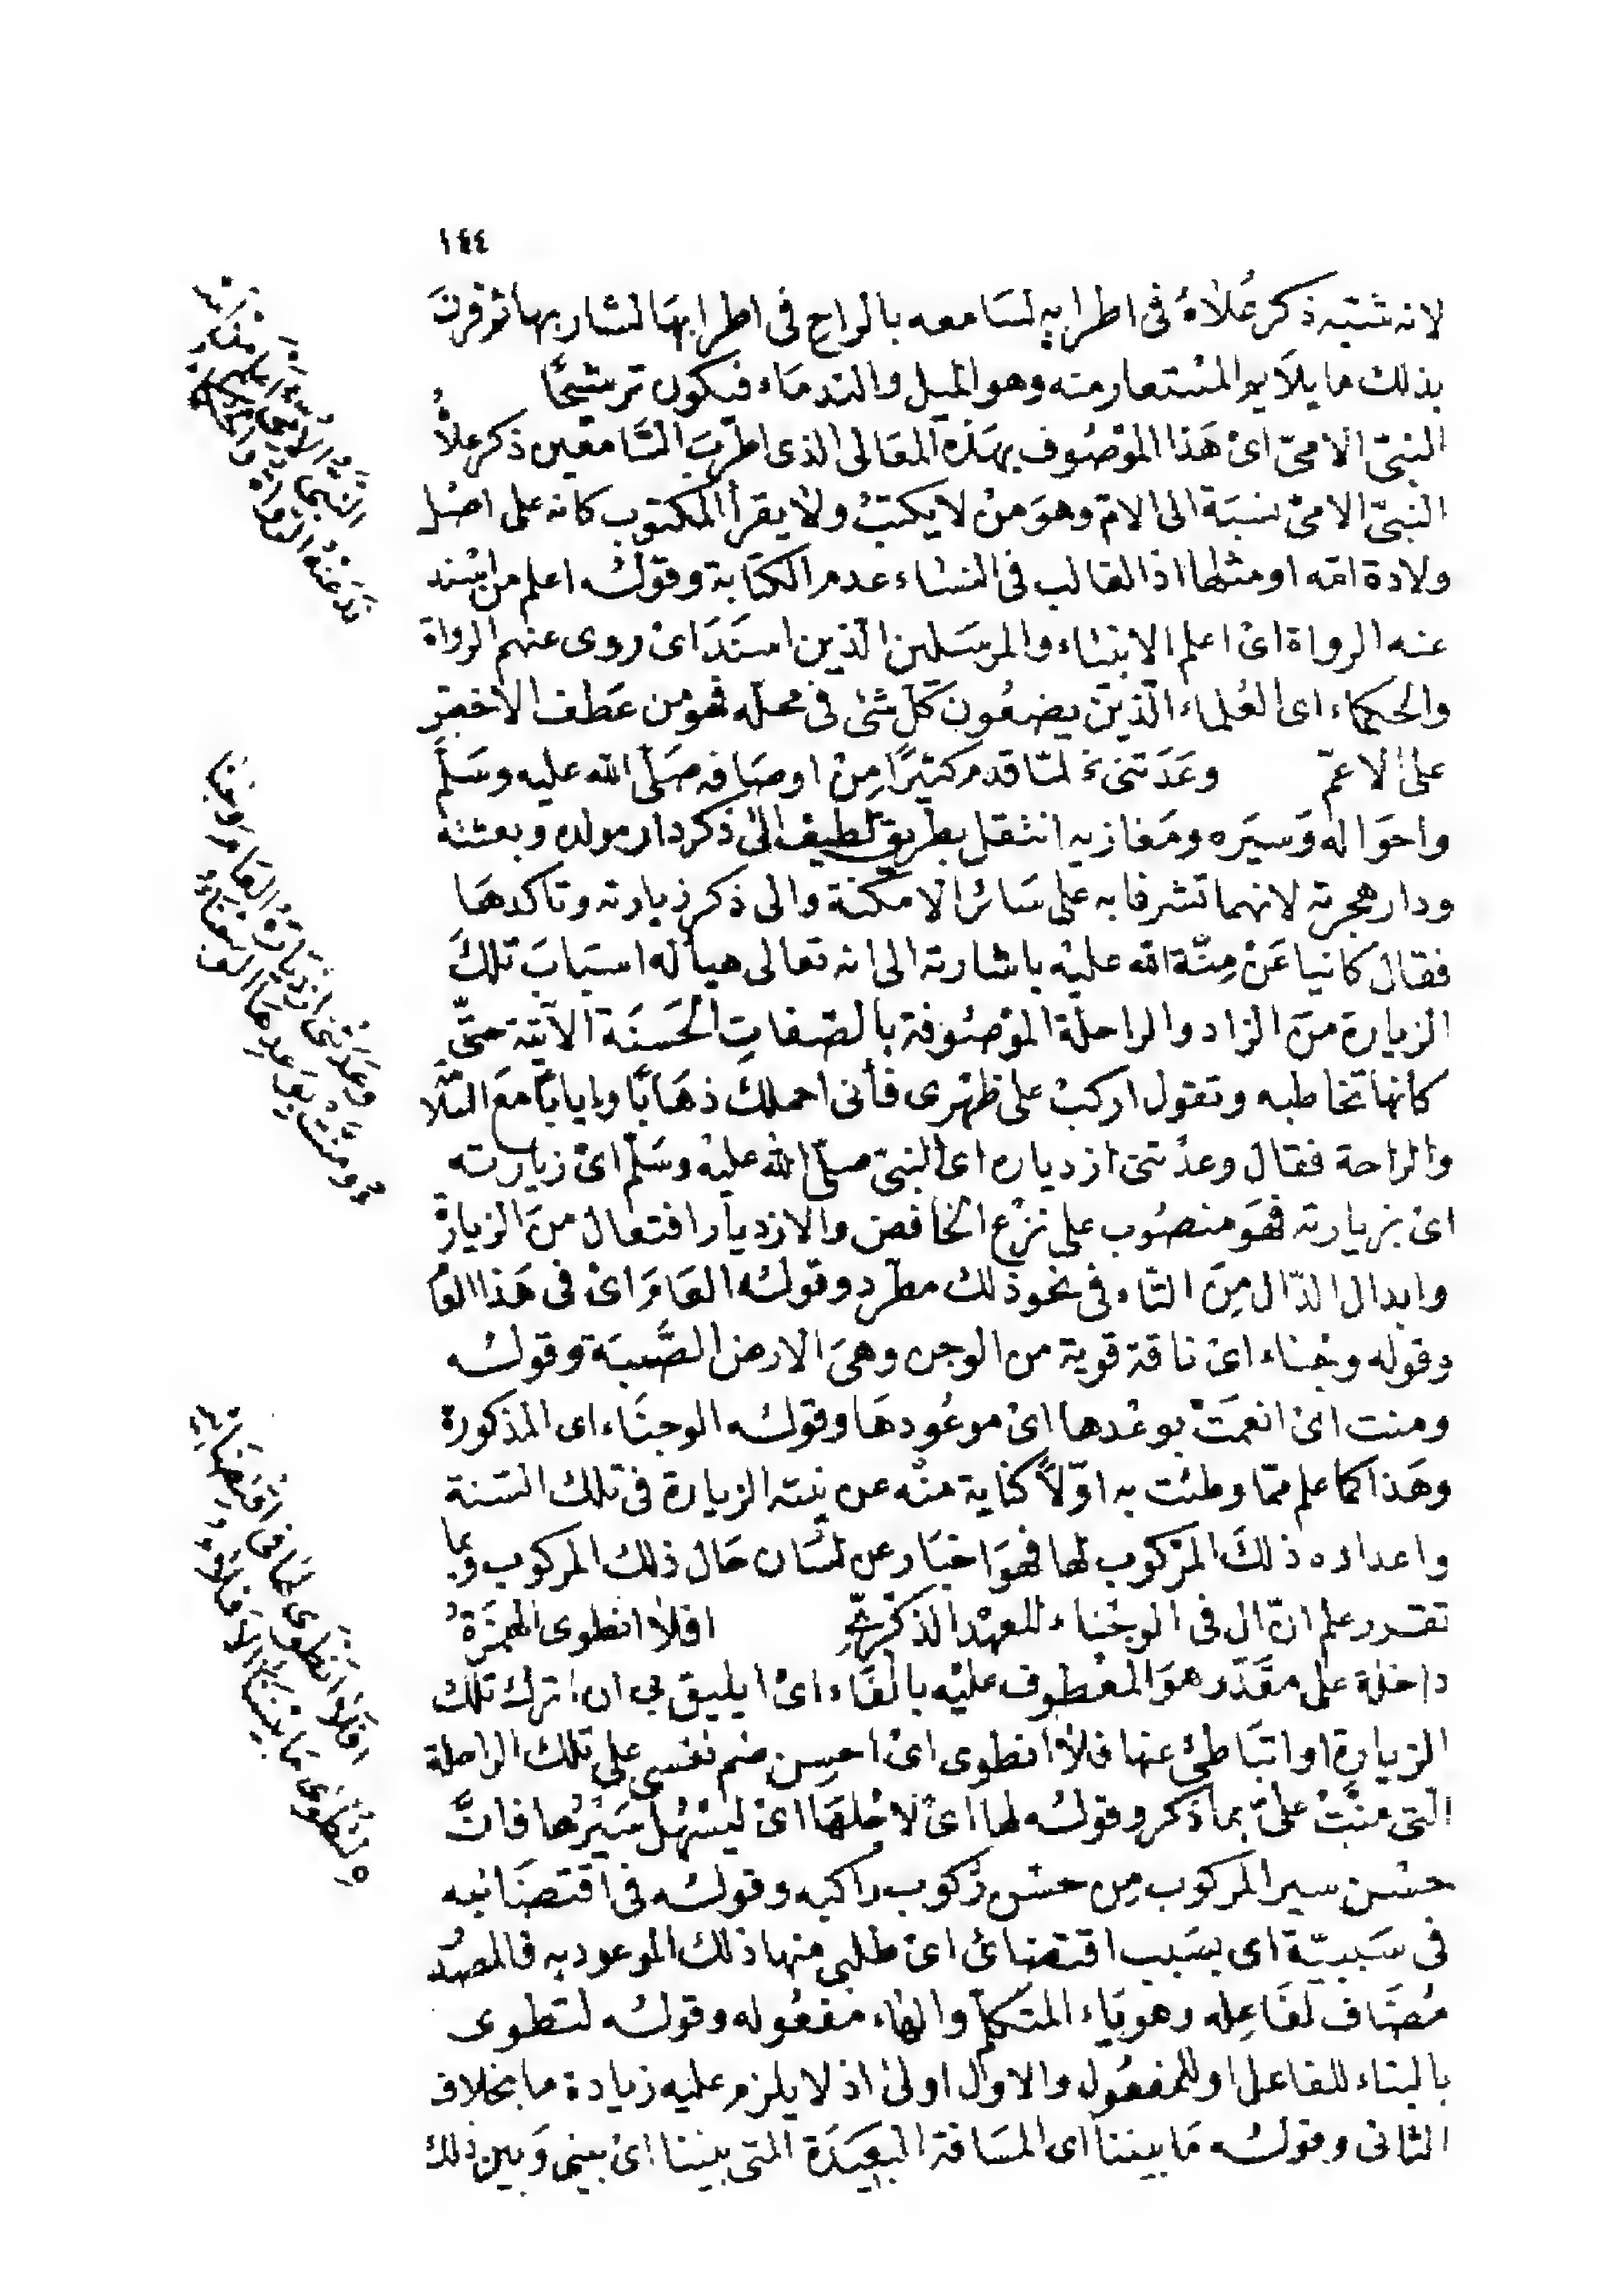 ١٤٤
لانه شبه ذكر عُلاهُ فى اطرابه لسامعه بالراح فى اطرابها لشاربها ثم قرن
بذلك ما يلايم المستعار منه وهو الميل والندماء فيكون ترشيحًا
النبىّ الامىّ اىْ هَذا الموْصُوف بهَذه المعَالى الذى اطرَبَ السَّامعين ذكر علاهُ
النبىّ الامىّ نسبَة الى الامّ وهوَ منْ لا يكتبُ ولا يقرأ المكتوب كانه على اصْل
ولادة امّه او مثلها اذ الغالب فى النساء عدم الكتابة وقولُه اعلم من اسْند
عنه الرواة اىْ اعلم الانبياء والمرسَلين الّذين اسنَدَ اىْ روى عنهم الرواة
والحكماء اى العُلماء الّذين يضعُون كلّ شئ فى محلّه فهو من عَطف الاخصّ
على الاعمّ وعَدَتنى لمّا قدم كثيرًا مِنْ اوصَافه صَلّى الله عليه وسَلّم
واحوَاله وَسيَره ومَغازيه انتقل بطريق لطيف الى ذكر دار مولده وبعثته
ودار هجرته لانهما تشرفا به على سَائر الامكنة والى ذكر زيارته وتاكدهَا
فقالَ كانيا عَنْ مِنّة الله عليْه باشارته الى انه تعالى هيأ له اسبَابَ تلكَ
الزيارة منَ الزاد والراحلة الموْصُوفة بالصّفاتِ الحَسنَة الآتية حتّى
كانها تخاطبه وتقول اركبْ على ظهْرى فأنى احملكَ ذهَابًا وايابًا معَ السّلا
والراحة فقال وعدَتنى ازدياره اى النبىّ صلّى الله عليْه وسَلّم اىْ زيارته
اىْ بزيارته فهوَ منصُوب على نزْع الخافض والازديار افتعال منَ الزيارة
وابدال الدّال مِنَ التّاء فى نحو ذلك مطّرد وقولُه العَامَ اىْ فى هَذا العَا
وقوله وجْناء اىْ ناقة قوية من الوجن وهىَ الارض الصَّلبَة وقولُه
ومنت اىْ انعمَتْ بوعْدها اىْ موعُودهَا وقولُه الوجنَاء اى المذكورة
وهَذا كما علم ممّا وطئت به اوّلاً كناية منْه عن نيته الزيارة فى تلك السّنة
واعداده ذلكَ المرْكوب لها فهوَ اخبَار عن لسَان حَال ذلك المركوب وبما
تقرر علم انّ ال فى الوجْناء للعهْد الذكْرىّ افلا انطوى الهمزَةُ
داخلة على مقَدّر هوَ المعْطوف عليْه بالفَاء اىْ ايليق بى ان اترك تلك
الزيارة او اتبَاطئ عنها فلا انطوى اىْ احسِن ضم نفسى على تلك الراحلة
التى منّتْ علىّ بما ذكر وقولُه لها اىْ لاجْلهَا اىْ ليسْهُل سَيْرُها فانَّ
حسْن سير المركوب مِن حسْن رُكوب راكبه وقولُه فى اقتضَائيه
فى سَببيّة اى بسَبب اقتضائى اىْ طلبى منها ذلك الموعود به فالمصْد
مُضَاف لفَاعِله وهو يَاء المتكلّم والهاء مفعُوله وقولُه لتطوى
بالبناء للفاعل او للمفعُول والاوّل اولى اذ لا يلزم عليه زيادة ما بخلاف
الثانى وقولُه مَا بيننا اى المسَافة البَعِيَدة التى بيننا اىْ بينى وَبين ذلك
النَّبِىُّ الأُمِّىُّ اَعلمُ مَنْ اَسْـ
نَدَ عَنْهُ الرُّوَاةُ وَالحُكَمَاءُ
وعَدَتْنى ازْدِيَارَهُ العَامَ وَجْنَا
ءُ ومَنَّتْ بوَعْدِهَا الوَجْنَاءُ
اَفَلَا اَنْطَوى لَهَا فى اقْتِضَائِيـ
ـهِ لتُطْوَى مَا بَيْنَنَا الاَفْلَاءُ